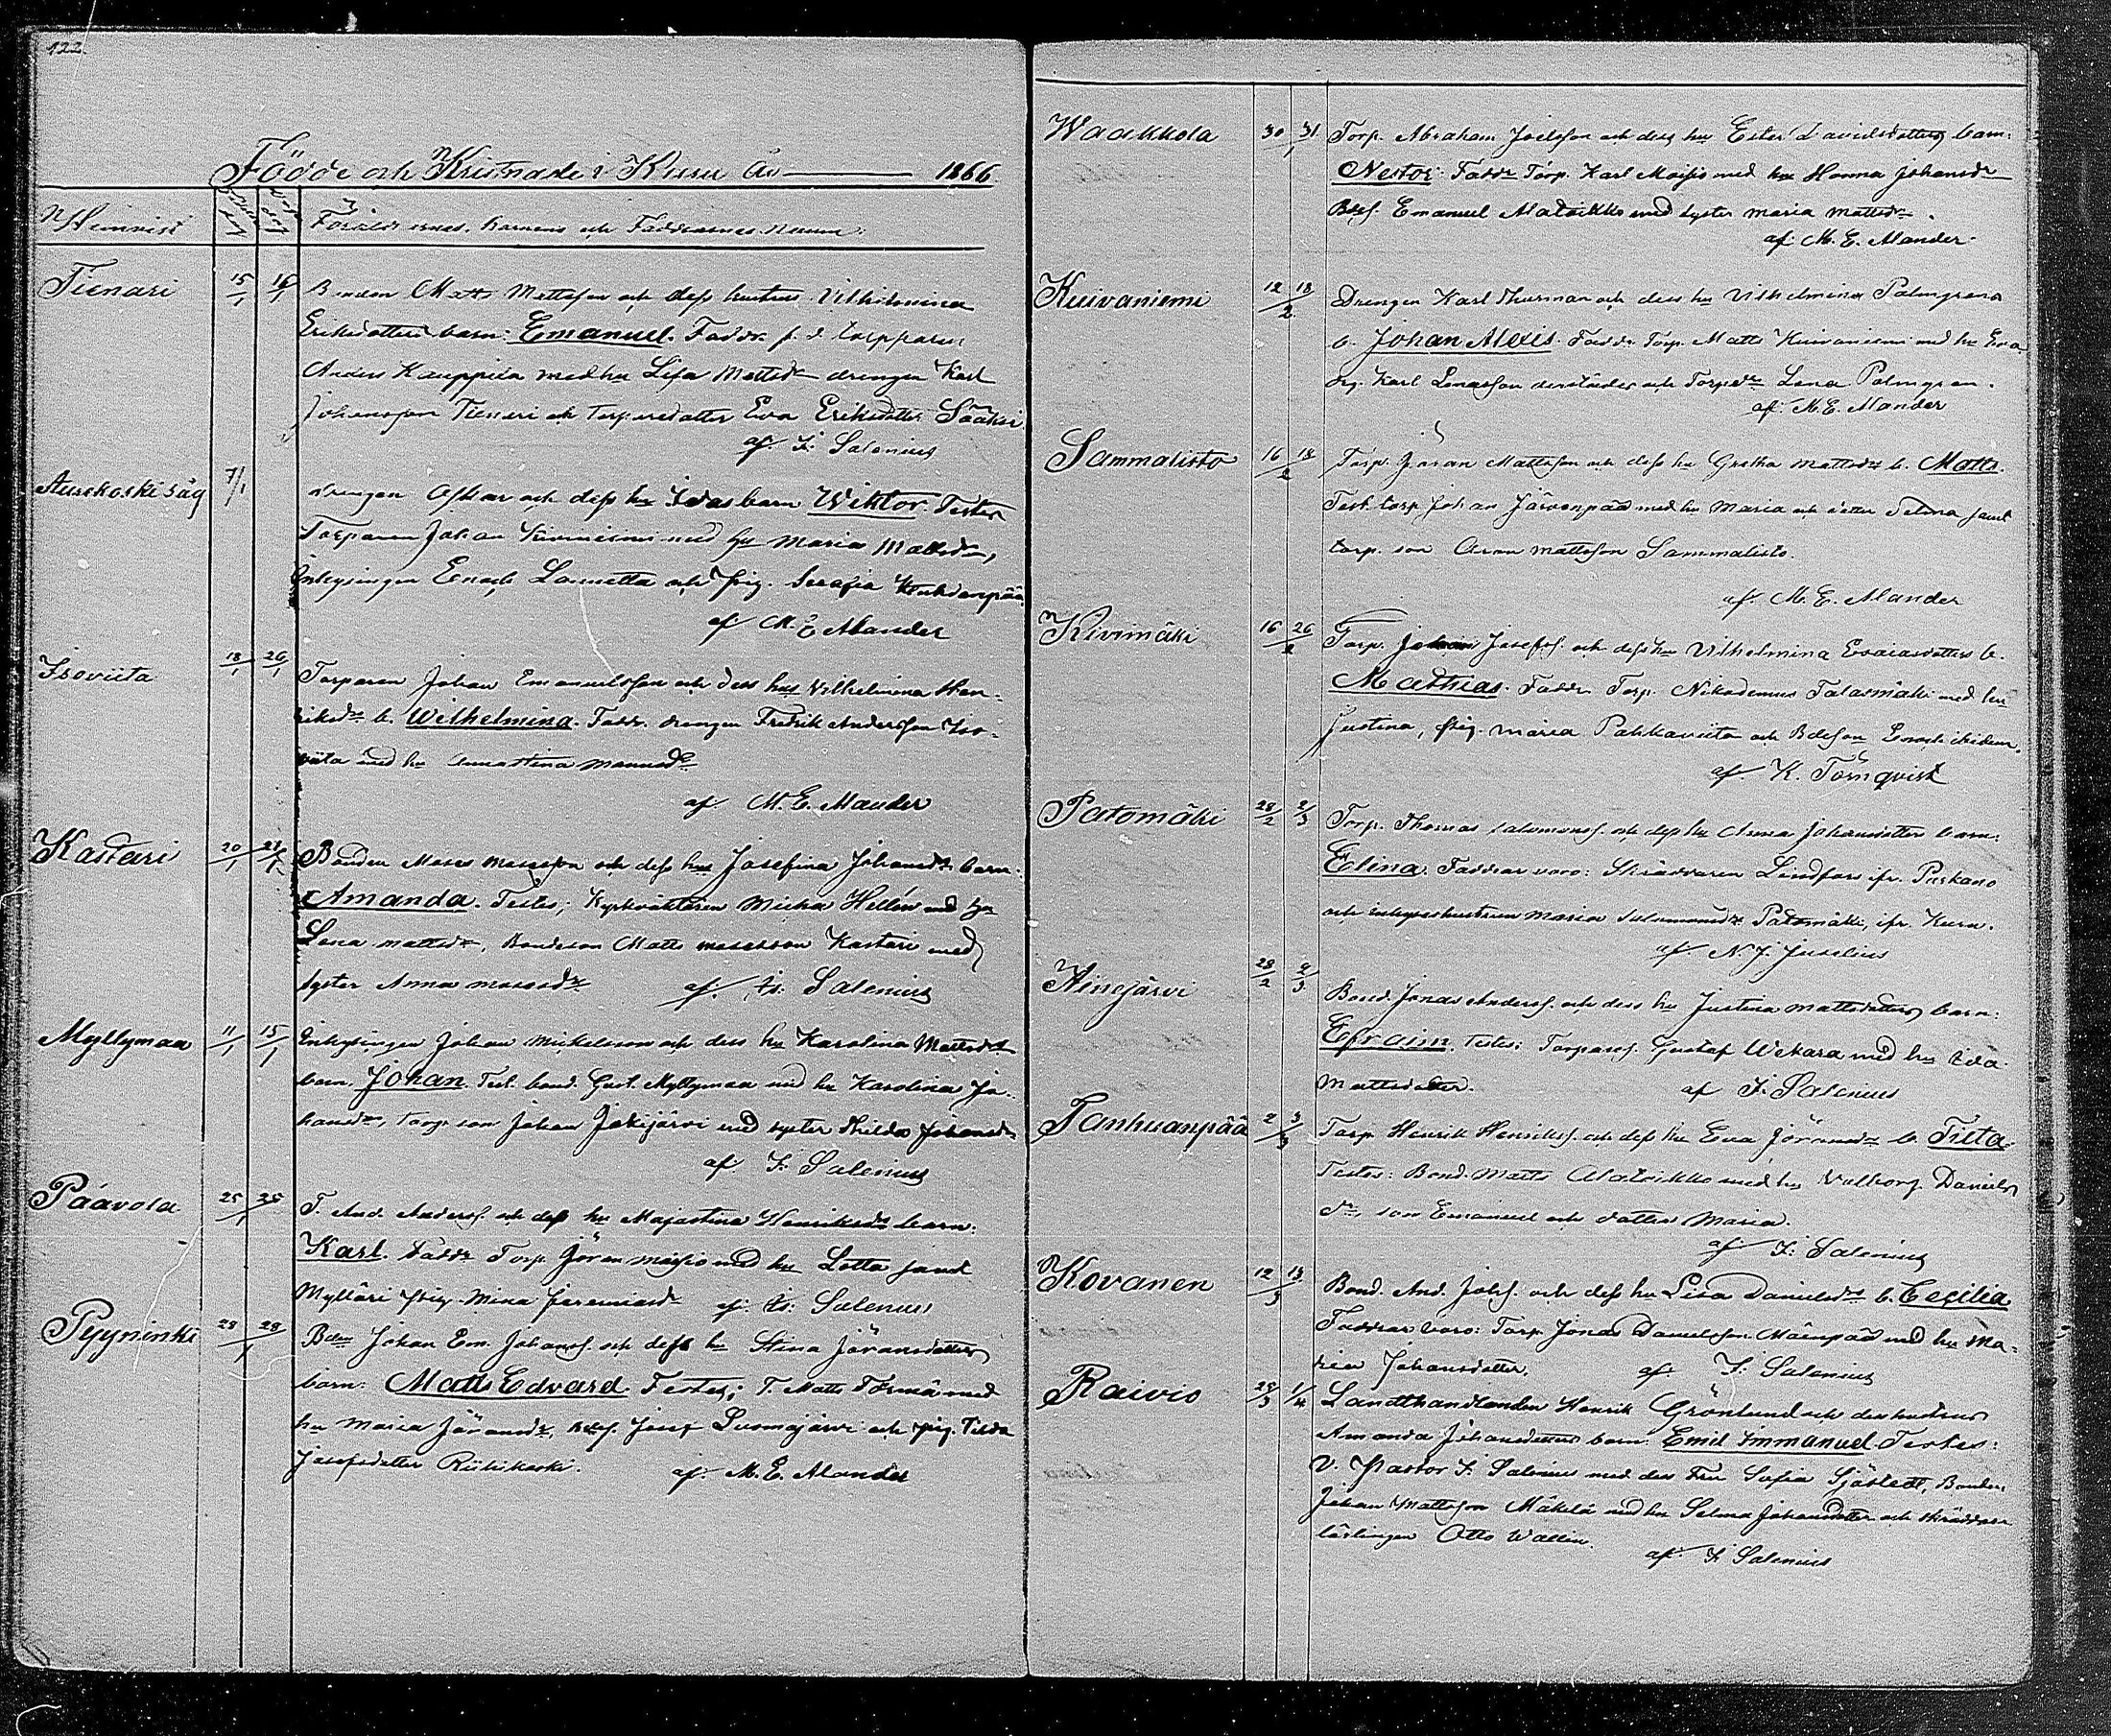 122.
Födde och Kristnade i Kuru År 1866
Hemvist
Föräldrarnes, barnens och Faddrarnes namn.
Tienari 15/1 16/1 Bonden Matts Mattsson och dess hustrus Vilhelmina
Eriksdotters barn: Emanuel. Faddr. f. d. torpparen
Anders Kauppila med hu Lisa Mattsdr drengen Karl
Johansson Tienari och torparedotter Eva Eriksdotter Sääksi
af F. Salenius
Aurekoski såg 7/1 drengen Oskar och dess hu Idas barn Wiktor. Testes
Torparen Johan Kiviniemi med hu Maria Mattsdr,
Inhysingen Enoch Lametta och pig. Serafia
af M. E. Alander
Isoviita 18/1 26/1 Torparen Johan Emanuelsson och dess hus Vilhelmina Hen-
riksdrs b. Wilhelmina. Faddr. drengen Fredrik Andersson Iso-
viita med hu Annastina Mannsdr
af M. E. Alander
Kastari 20/1 21/1 Bonden Moses Mosesson och dess hus Josefina Johansdrs barn:
Amanda. Testes; Kyrkväktaren Micka Hellén med hu
Lena Mattsdr, Bondeson Matts Mosesson Kastari med
syster Anna Mosesdr af. F. Salenius
Myllymaa 11/1 15/1 Inhysingen Johan Mickelsson och dess hu Karolina Mattsdrs
barn. Johan. Test. bond. Gust. Myllymaa med hu Karolina Jo-
hansdr, torp. son Johan Jokijärvi med syster Hilda Johansdr
af F. Salenius
Paavola 25/1 26 T. And. Anderss. och dess hu Majastina Henriksdrs barn:
Karl. Faddr Torp. Jöran Maisio med hu Lotta samt
Mylläri pig. Mina Jeremiasdr af F. Salenius
Pyyninki 28/1 28 Bden Johan Em. Johanss. och dess hu Stina Jöransdotters
barn. Matts Edvard. Testes; T. Matts Törmä med
hu Maria Jöransdr, Josef Luomajärvi och pig. Tilda
Josefsdotter Riihikoski. af M. E. Alander
Waakkola 30 31/1 Torp. Abraham Joelsson och dess hu Ester Davidsdotters barn:
Nestor. Faddr Torp. Karl Maisio med hu Hanna Johansdr
Bdes. Emanuel Alatoikko med syster Maria Mattsdr.
af M. E. Alander
Kuivaniemi 12 18/2 Drengen Karl Thurman och dess hu Vilhelmina Palmgrens
b. Johan Alexis. Faddr. Torp. Matts Kuivaniemi med hu Eva
drg. Karl Jonasson derstädes och Torpedr Lena Palmgren.
af M. E. Alander
Sammalisto 16 18/2 Torp. Jöran Mattsson och dess hu Gretha Mattsdrs b. Matts.
Test. torp. Johan Järvenpää med hu Maria och dotter Selma samt
torp. son Aron Mattsson Sammalisto.
af. M. E. Alander
Kivimäki 16 26/2 Torp. Johan Josefss. och dess hu Vilhelmina Esaiasdotters b.
Mathias. Faddr. Torp. Nikodemus Talasmäki med hu
Justina, pig. Maria Pahkaviita och Bdeson Enoch ibidem.
af K. Törnqvist
Patomäki 28/2 2/3 Torp. Thomas Salomonss. och dess hu Anna Johansdotters barn:
Elina. Faddrar voro: Skräddaren Lindfors ifr. Parkano
och inhyseshustrun Maria Salomonsdr Patomäki, ifr. Kuru.
af N. J. Juselius
Hinejärvi 28/2 2/3 Bond. Jonas Anderss. och dess hu Justina Mattsdotters barn:
Efraim. Testes: Torpares. Gustaf Wekara med hu Eva
Mattsdotter. af F. Salenius
Tanhuanpää 2/3 3 Torp. Henrik Henrikss. och dess hu Eva Jöransdrs b. Fieta.
Testes: Bond. Matts Alatoikko med hu Valborg Daniels
dr, son Emanuel och dotter Maria.
af F. Salenius
Kovanen 12/3 13 Bond. And. Johs. och dess hu Lisa Danielsdrs b. Cecilia
Faddrar voro: Torp. Jonas Danielsson Mäenpää med hu Ma-
ria Johansdotter. af F. Salenius
Raivio 29/3 1/4 Landthandlanden Henrik Grönlund och dess hustrus
Amanda Johansdotters barn Emil Immanuel. Testes:
V. Pastor F. Salenius med dess Fru Sofia Sjöstedt, Bonden
Johan Mattsson Mäkelä med hu Selma Johansdotter och skräddare
lärlingen Otto Wallin.
af F. Salenius